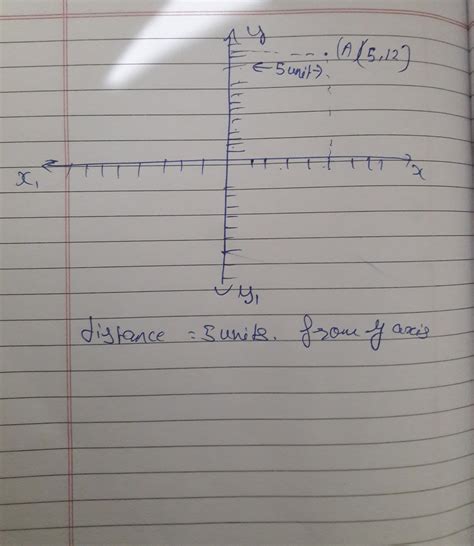 y
(A)(5,12)
← 5 unit →
x₁
x
y₁
distance = 5 units. from y axis